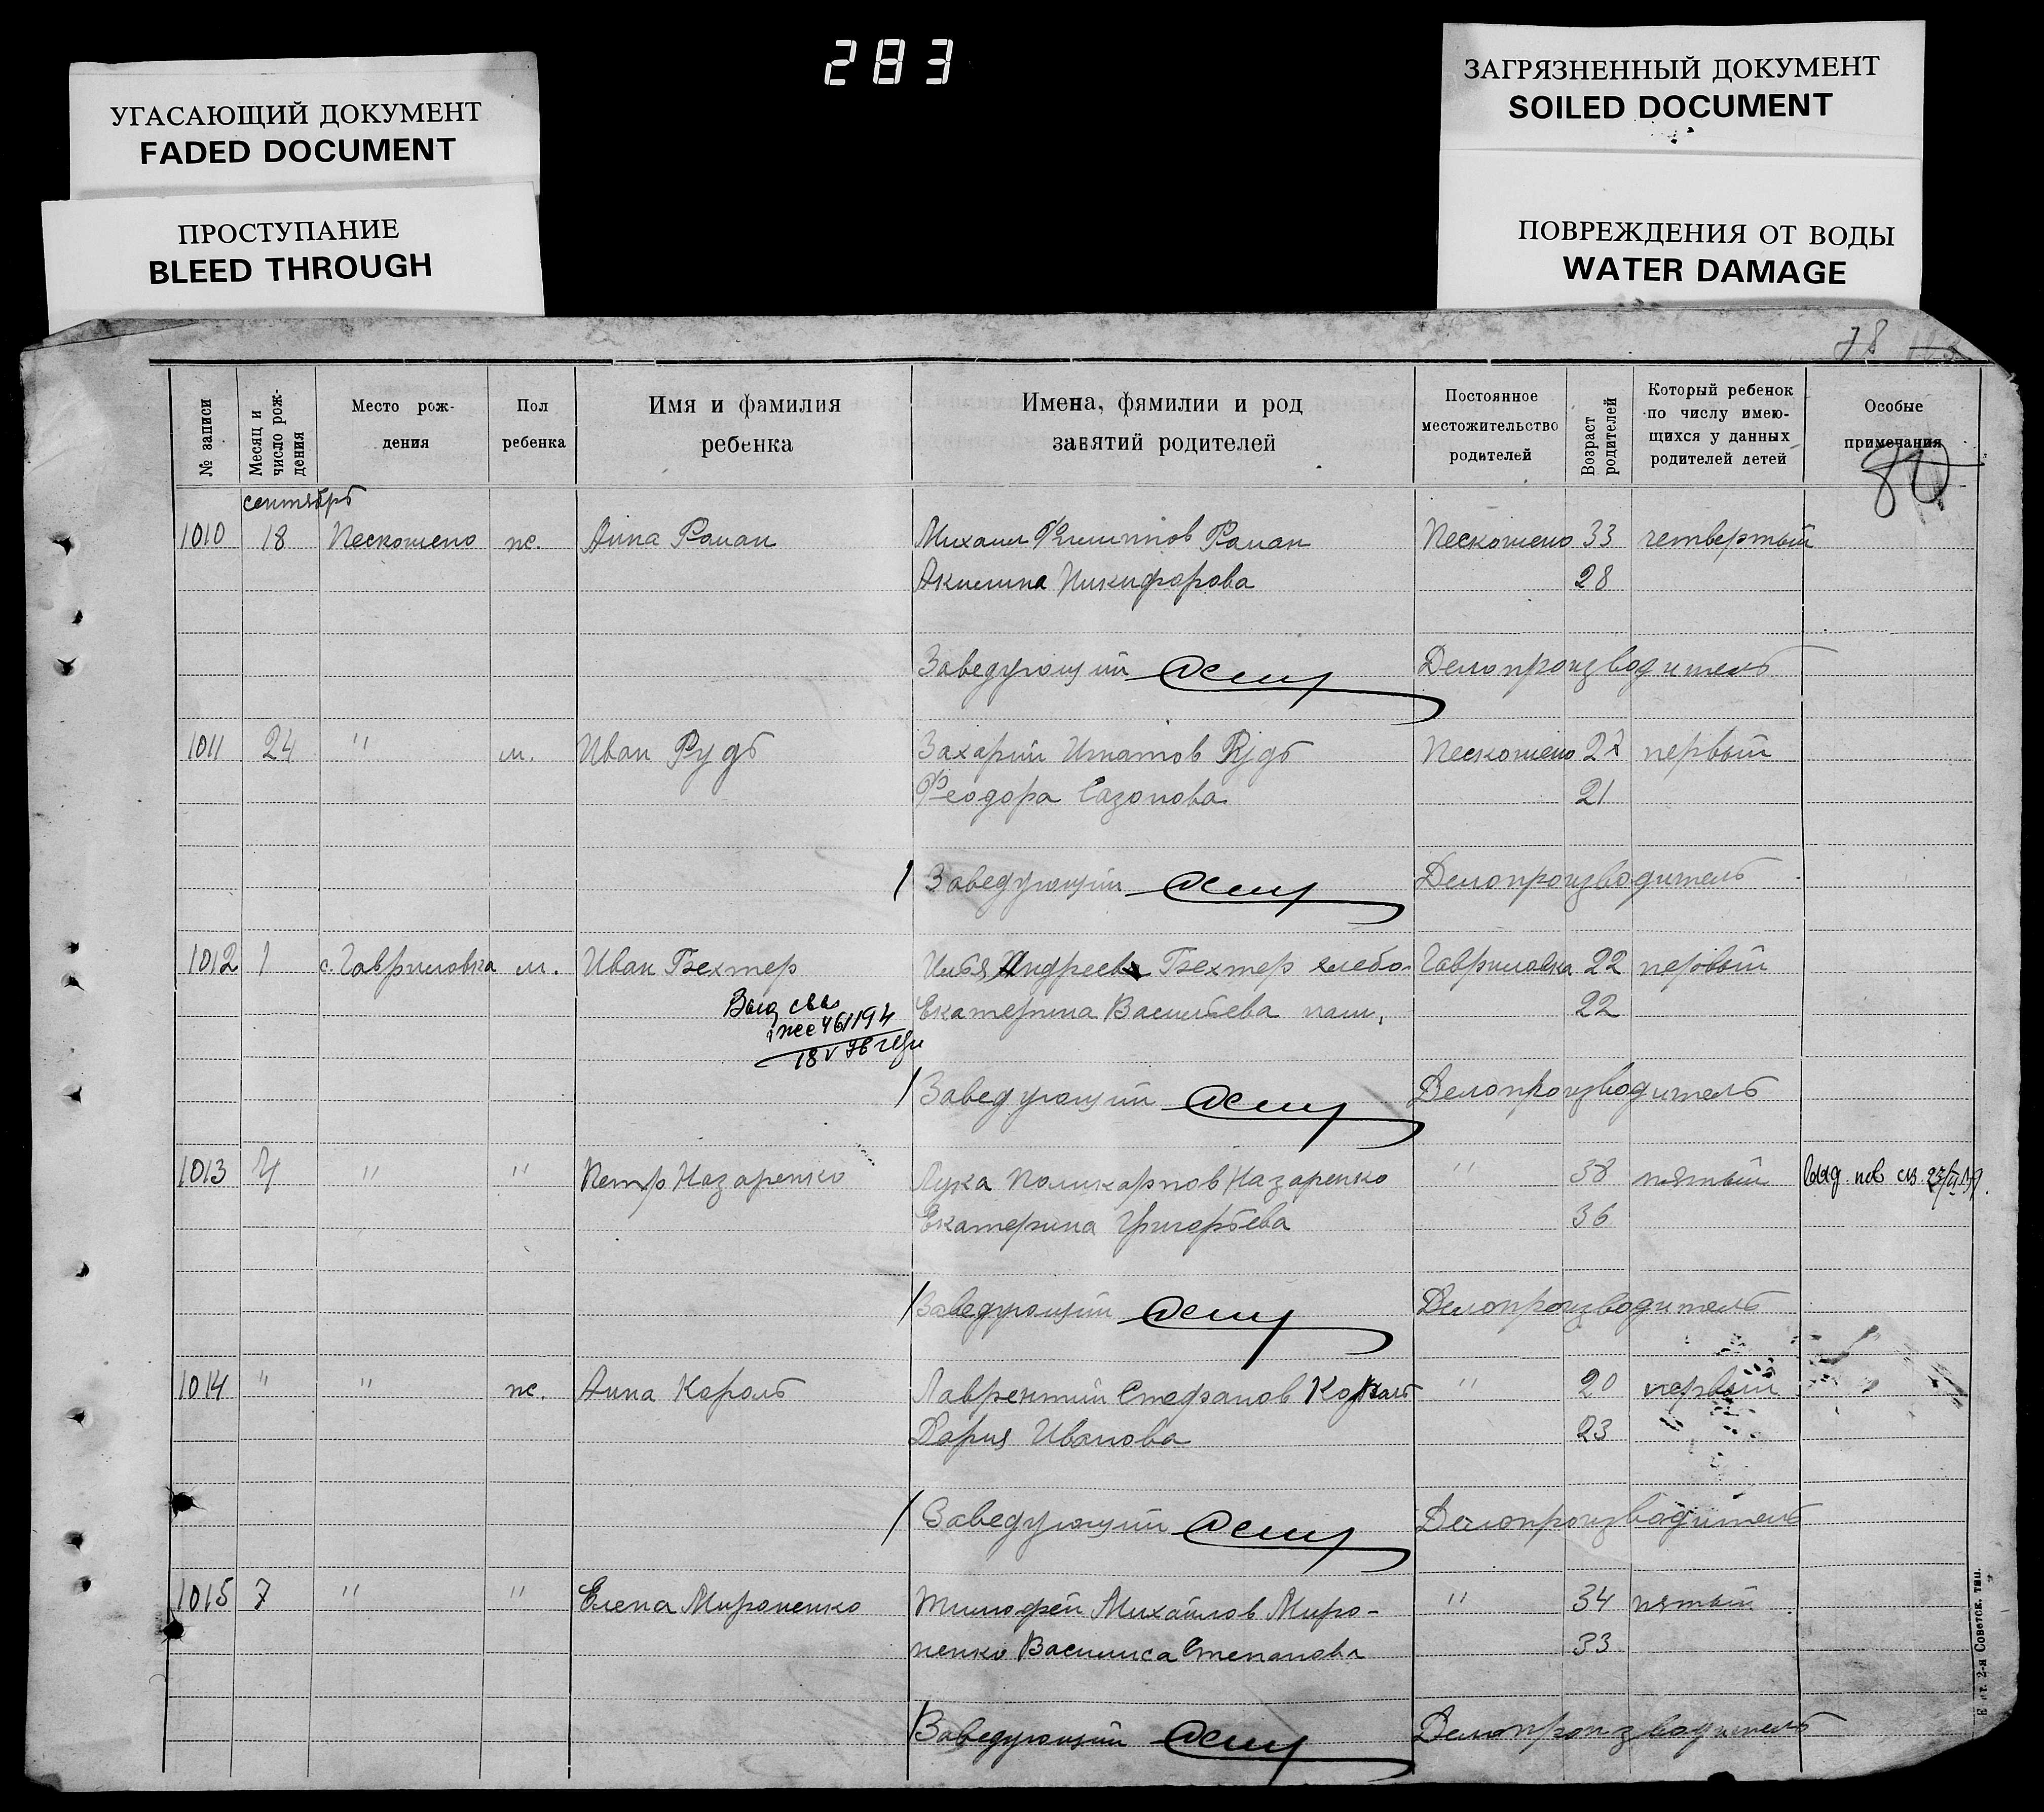 283
УГАСАЮЩИЙ ДОКУМЕНТ
FADED DOCUMENT
ПРОСТУПАНИЕ
BLEED THROUGH
ЗАГРЯЗНЕННЫЙ ДОКУМЕНТ
SOILED DOCUMENT
ПОВРЕЖДЕНИЯ ОТ ВОДЫ
WATER DAMAGE
78
№ записи
Месяц и число рож-дения
Место рож-дения
Пол ребенка
Имя и фамилия ребенка
Имена, фямилии и род занятий родителей
Постоянное местожительство родителей
Возраст родителей
Который ребенок по числу имею-щихся у данных родителей детей
Особые примечания
80
сентябрь
1010 18 Нескошено ж. Анна Роман Михаил Филиппов Роман Нескошено 33 четвертый
Акилина Никифорова 28
Заведующий Делопроизводитель
1011 24 " м. Иван Рудь Захарий Игнатов Рудь Нескошено 22 первый
Феодора Сазонова 21
Заведующий Делопроизводитель
1012 1 с. Гавриловка м. Иван Бехтер Илья Андреев Бехтер хлебо- Гавриловка 22 первый
Екатерина Васильева паш. 22
Выд сви
18 V
Заведующий Делопроизводитель
1013 4 " " Петр Назаренко Лука Поликарпов Назаренко " 38 пятый Выд. пов св.
Екатерина Григорьева 36
Заведующий Делопроизводитель
1014 " " ж. Анна Король Лаврентий Стефанов Король " 20 первый
Дария Иванова 23
Заведующий Делопроизводитель
1015 7 " " Елена Мироненко Тимофей Михайлов Миро- " 34 пятый
ненко Василиса Степанова 33
Заведующий Делопроизводитель
2-я Советск. тип.